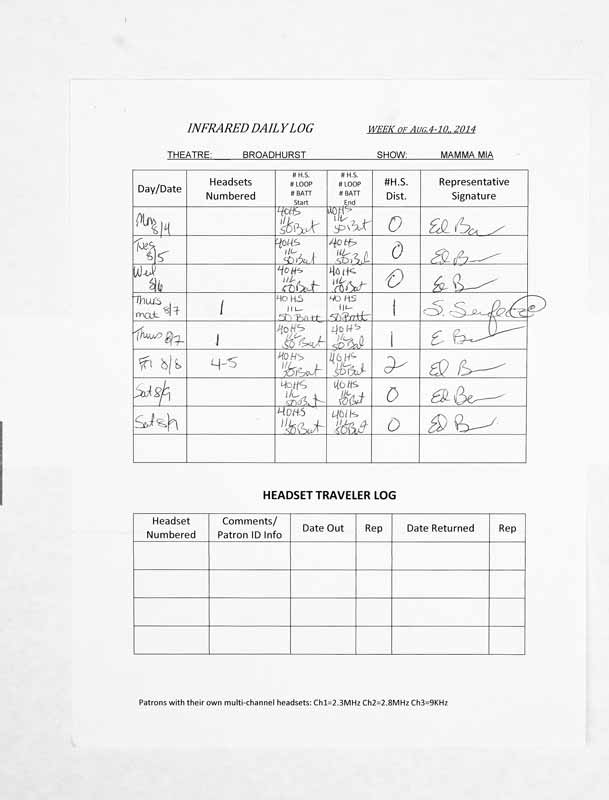 INFRARED DAILY LOG WEEK OF AUG.4-10,, 2014
THEATRE: BROADHURST SHOW: MAMMA MIA
Day/Date Headsets Numbered # H.S. # LOOP # BATT Start # H.S. # LOOP # BATT End #H.S. Dist. Representative Signature
Mon 8/4 40HS 1L 50Bat 40HS 1L 50Bat 0 Ed
Tues 8/5 40HS 1L 50Bat 40HS 1L 50Bat 0 Ed
Wed 8/6 40HS 1L 50Bat 40HS 1L 50Bat 0 Ed
Thurs mat 8/7 1 40 HS 1L 50 Batt 40 HS 1L 50 Batt 1 S.
Thurs 8/7 1 40HS 1L 50Bat 40HS 1L 50Bat 1 E
Fri 8/8 4-5 40HS 1L 50Bat 40HS 1L 50Bat 2 Ed
Sat 8/9 40HS 1L 50Bat 40HS 1L 50Bat 0 Ed
Sat 8/9 40HS 1L 50Bat 40HS 1L 50Bat 0 Ed
HEADSET TRAVELER LOG
Headset Numbered Comments/ Patron ID Info Date Out Rep Date Returned Rep
Patrons with their own multi-channel headsets: Ch1=2.3MHz Ch2=2.8MHz Ch3=9KHz